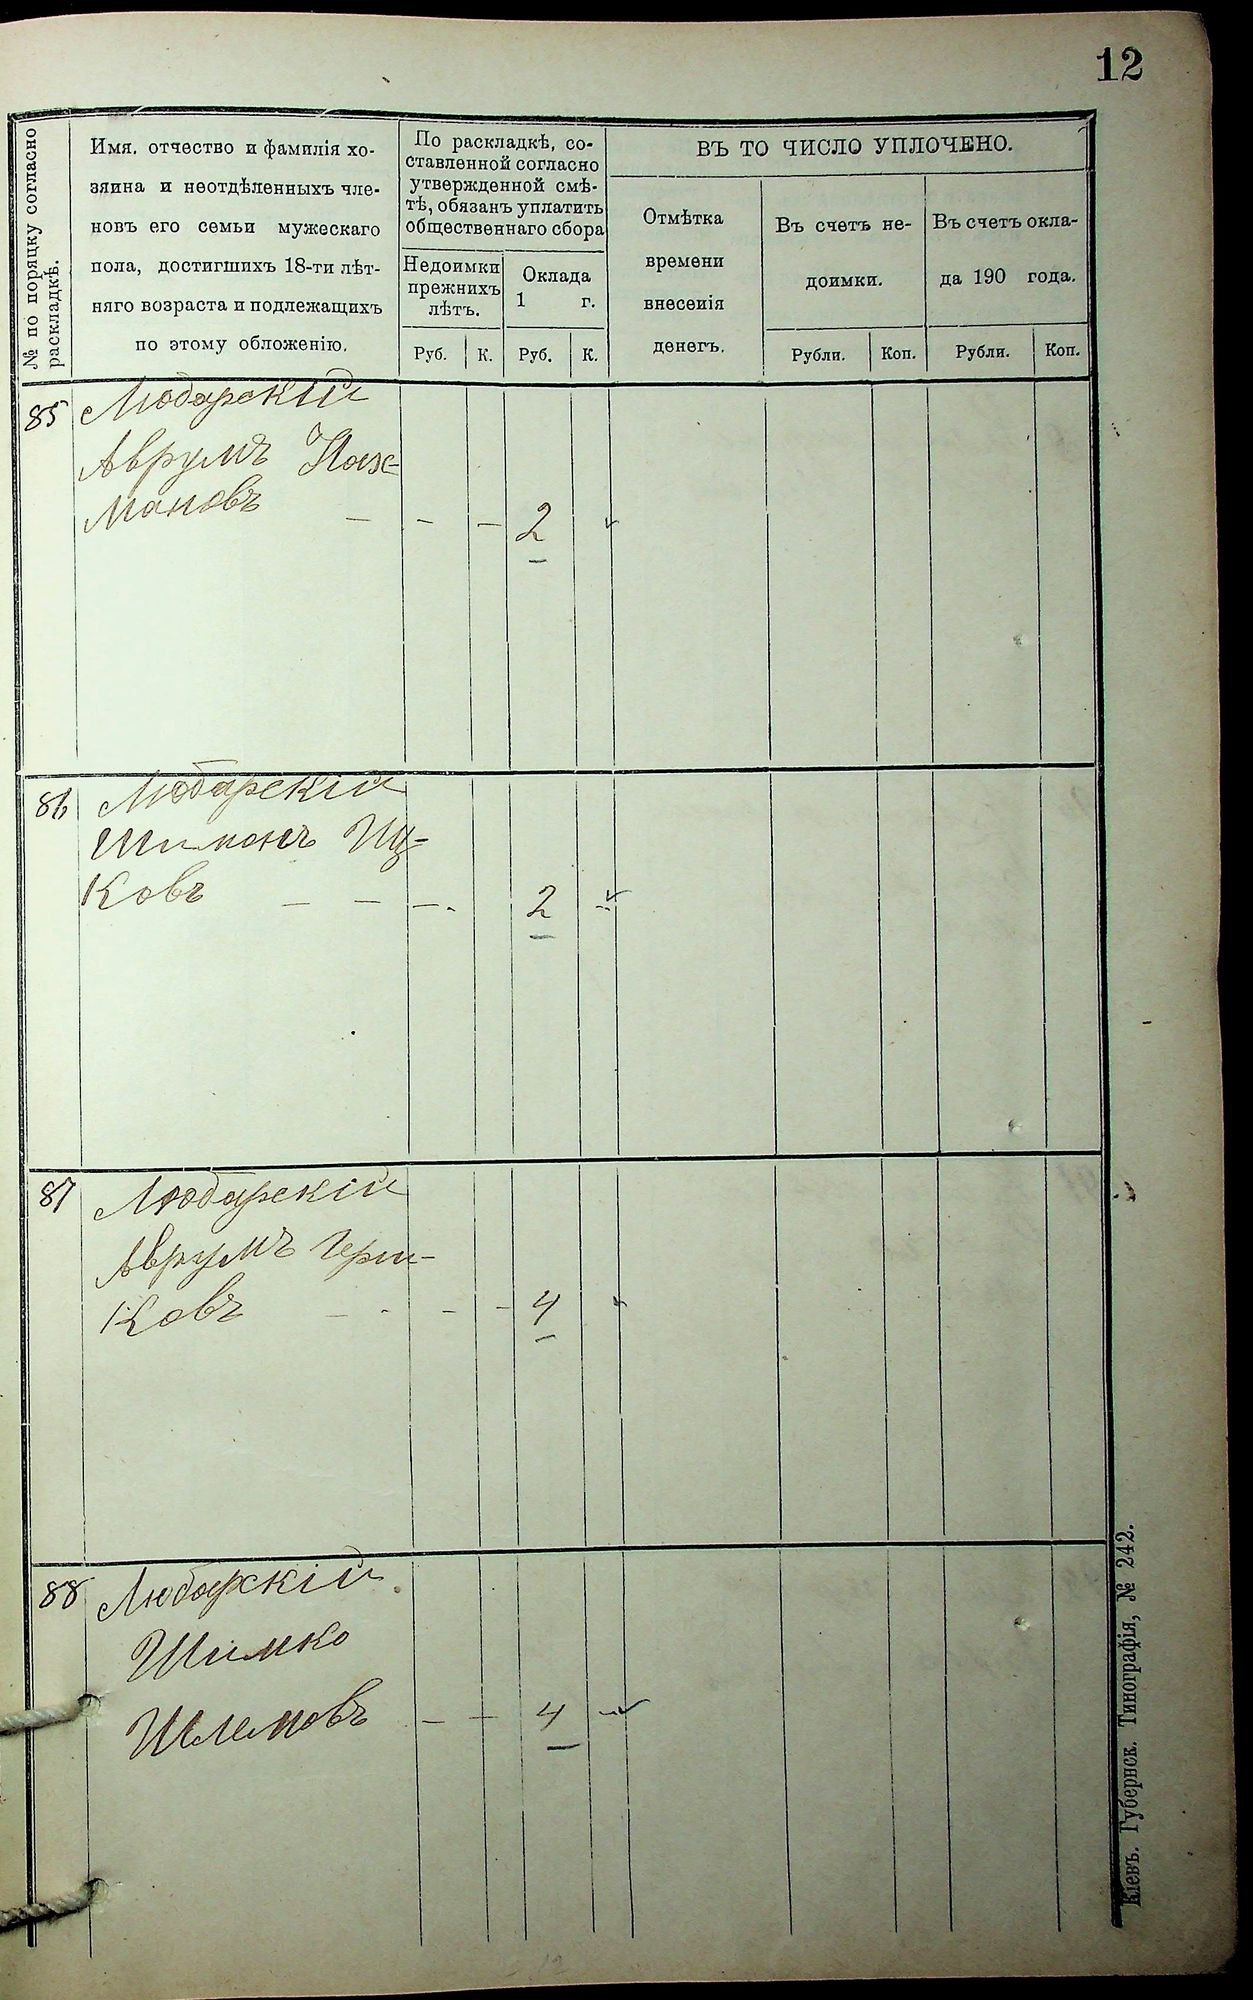 12
№ по поряцку согласно
раскладкѣ.
Имя, отчество и фамилія хо-
зяина и неотдѣленныхъ чле-
новъ его семьи мужескаго
пола, достигшихъ 18-ти лѣт-
няго возраста и подлежащихъ
по этому обложенію.
По раскладкѣ, со-
ставленной согласно
утвержденной смѣ-
тѣ, обязанъ уплатить
общественнаго сбора
Недоимки
прежнихъ
лѣтъ.
Оклада
1 г.
Руб. К. Руб. К.
ВЪ ТО ЧИСЛО УПЛОЧЕНО.
Отмѣтка
времени
внесенія
денегъ.
Въ счетъ не-
доимки.
Въ счетъ окла-
да 190 года.
Рубли. Коп. Рубли. Коп.
85 Любарскій
Аврумъ Нах-
мановъ — — — 2
86 Любарскій
Шимонъ Иц-
ковъ — — — 2
87 Любарскій
Аврумъ Герш-
ковъ — - — — 4
88 Любарскій
Шимко
Шлемовъ — — 4
Кіевъ. Губернск. Типографія, № 242.